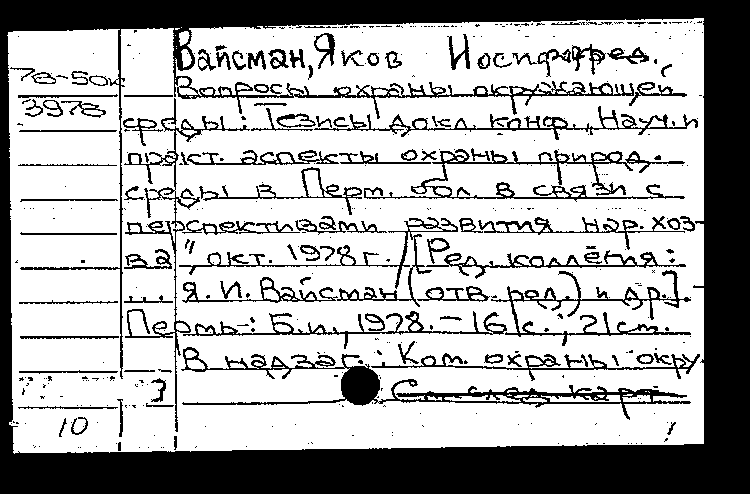 Вайсман, Яков Иосифович, ред.
78-50к
Вопросы охраны окружающей
3978
среды: Тезисы докл. конф. „Науч. и
практ. аспекты охраны природ.
среды в Перм. обл. в связи с
перспективами развития нар. хоз-
ва", окт. 1978 г. / [Ред. коллегия:
... Я. И. Вайсман (отв. ред.) и др.].
Пермь: Б.и., 1978. - 16 с., 21 см.
В надзаг.: Ком. охраны окру
См. след. карт
10 1